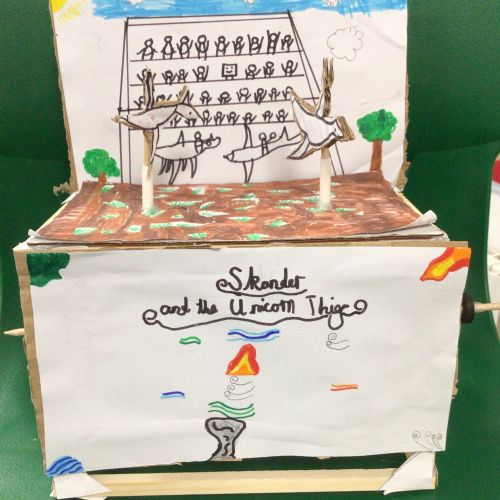 Skander
and the Unicorn Thigf